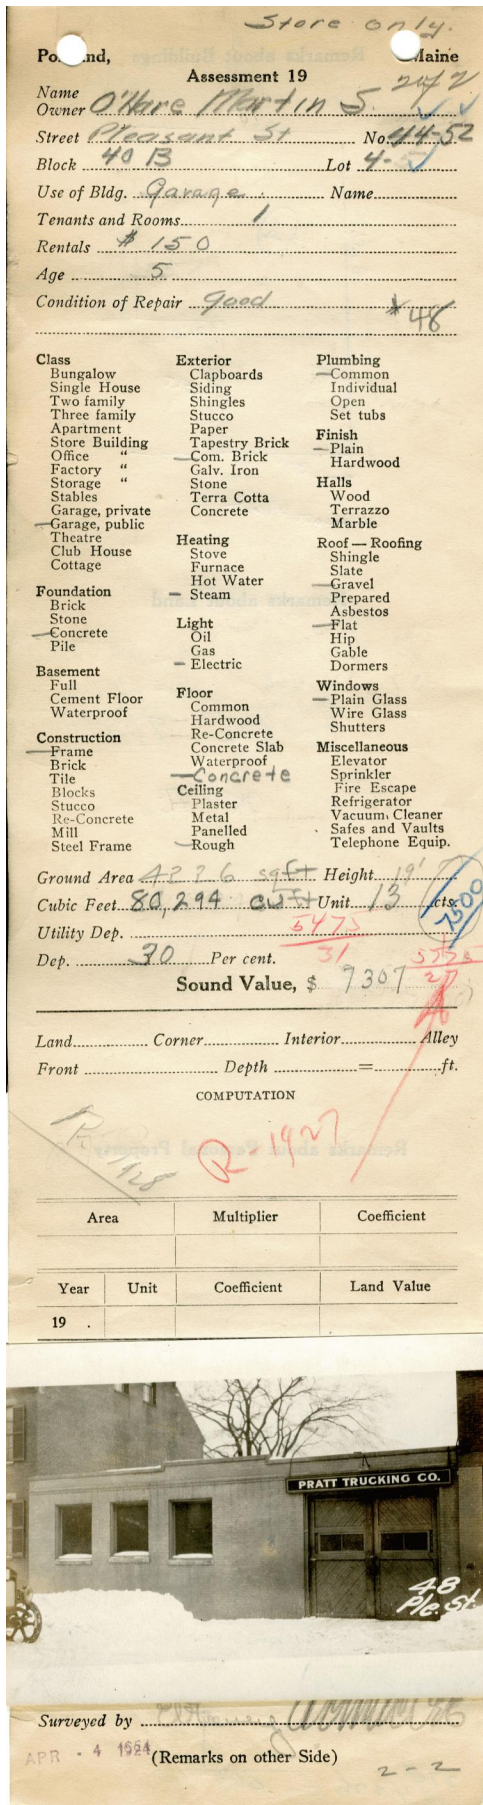 Store only.
Maine
Assessment 19
2 of 2
Name
Owner O'Hare Martin S.
Street Pleasant St No. 44-52
Block 40 B Lot 4-
Use of Bldg. Garage Name
Tenants and Rooms 1
Rentals $ 150
Age 5
Condition of Repair Good
* 48
Class
Bungalow
Single House
Two family
Three family
Apartment
Store Building
Office "
Factory "
Storage "
Stables
Garage, private
Garage, public
Theatre
Club House
Cottage
Foundation
Brick
Stone
Concrete
Pile
Basement
Full
Cement Floor
Waterproof
Construction
Frame
Brick
Tile
Blocks
Stucco
Re-Concrete
Mill
Steel Frame
Exterior
Clapboards
Siding
Shingles
Stucco
Paper
Tapestry Brick
Com. Brick
Galv. Iron
Stone
Terra Cotta
Concrete
Heating
Stove
Furnace
Hot Water
Steam
Light
Oil
Gas
Electric
Floor
Common
Hardwood
Re-Concrete
Concrete Slab
Waterproof
Concrete
Ceiling
Plaster
Metal
Panelled
Rough
Plumbing
Common
Individual
Open
Set tubs
Finish
Plain
Hardwood
Halls
Wood
Terrazzo
Marble
Roof — Roofing
Shingle
Slate
Gravel
Prepared
Asbestos
Flat
Hip
Gable
Dormers
Windows
Plain Glass
Wire Glass
Shutters
Miscellaneous
Elevator
Sprinkler
Fire Escape
Refrigerator
Vacuum Cleaner
Safes and Vaults
Telephone Equip.
Ground Area 4226 sq ft Height 19'
Cubic Feet 80,294 cu ft Unit 13 cts.
7500
7500
Utility Dep.
5475
31
Dep. 30 Per cent.
5775
27
Sound Value, $ 7307
Land Corner Interior Alley
Front Depth = ft.
COMPUTATION
R-1927
R 1928
Area Multiplier Coefficient
Year Unit Coefficient Land Value
19 .
PRATT TRUCKING CO.
48
Ple. St.
Surveyed by
APR - 4 1924
(Remarks on other Side)
2-2